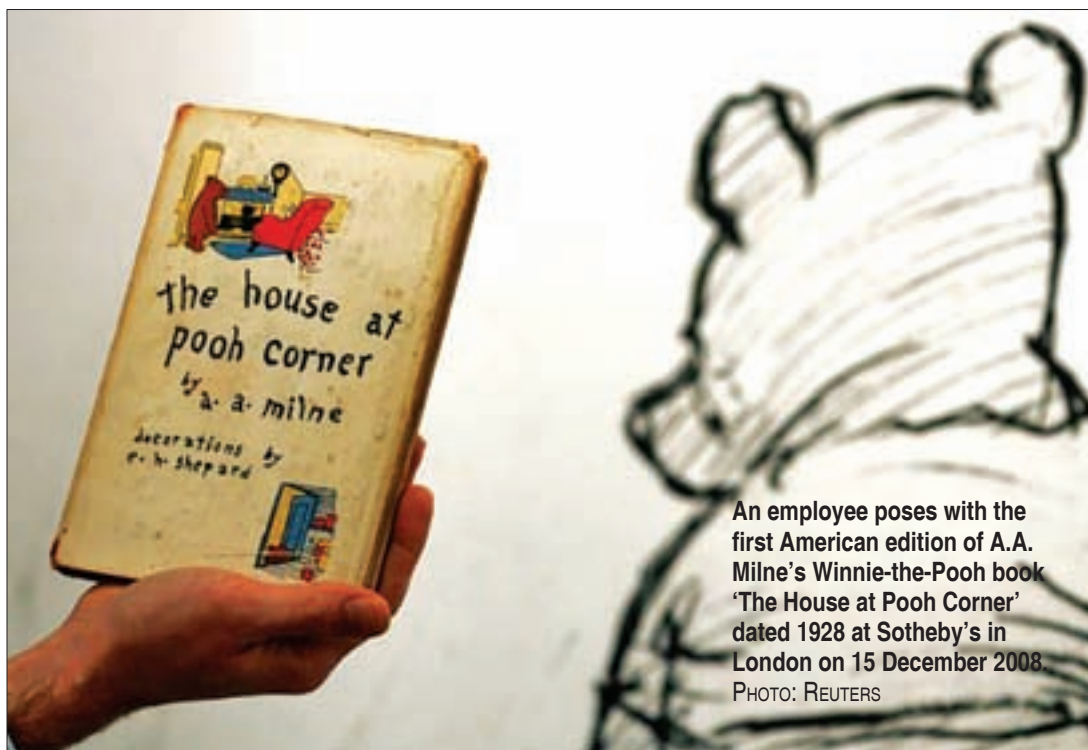 the house at
pooh corner
by
a. a. milne
decorations by
e. h. shepard
An employee poses with the
first American edition of A.A.
Milne’s Winnie-the-Pooh book
‘The House at Pooh Corner’
dated 1928 at Sotheby’s in
London on 15 December 2008.
PHOTO: REUTERS